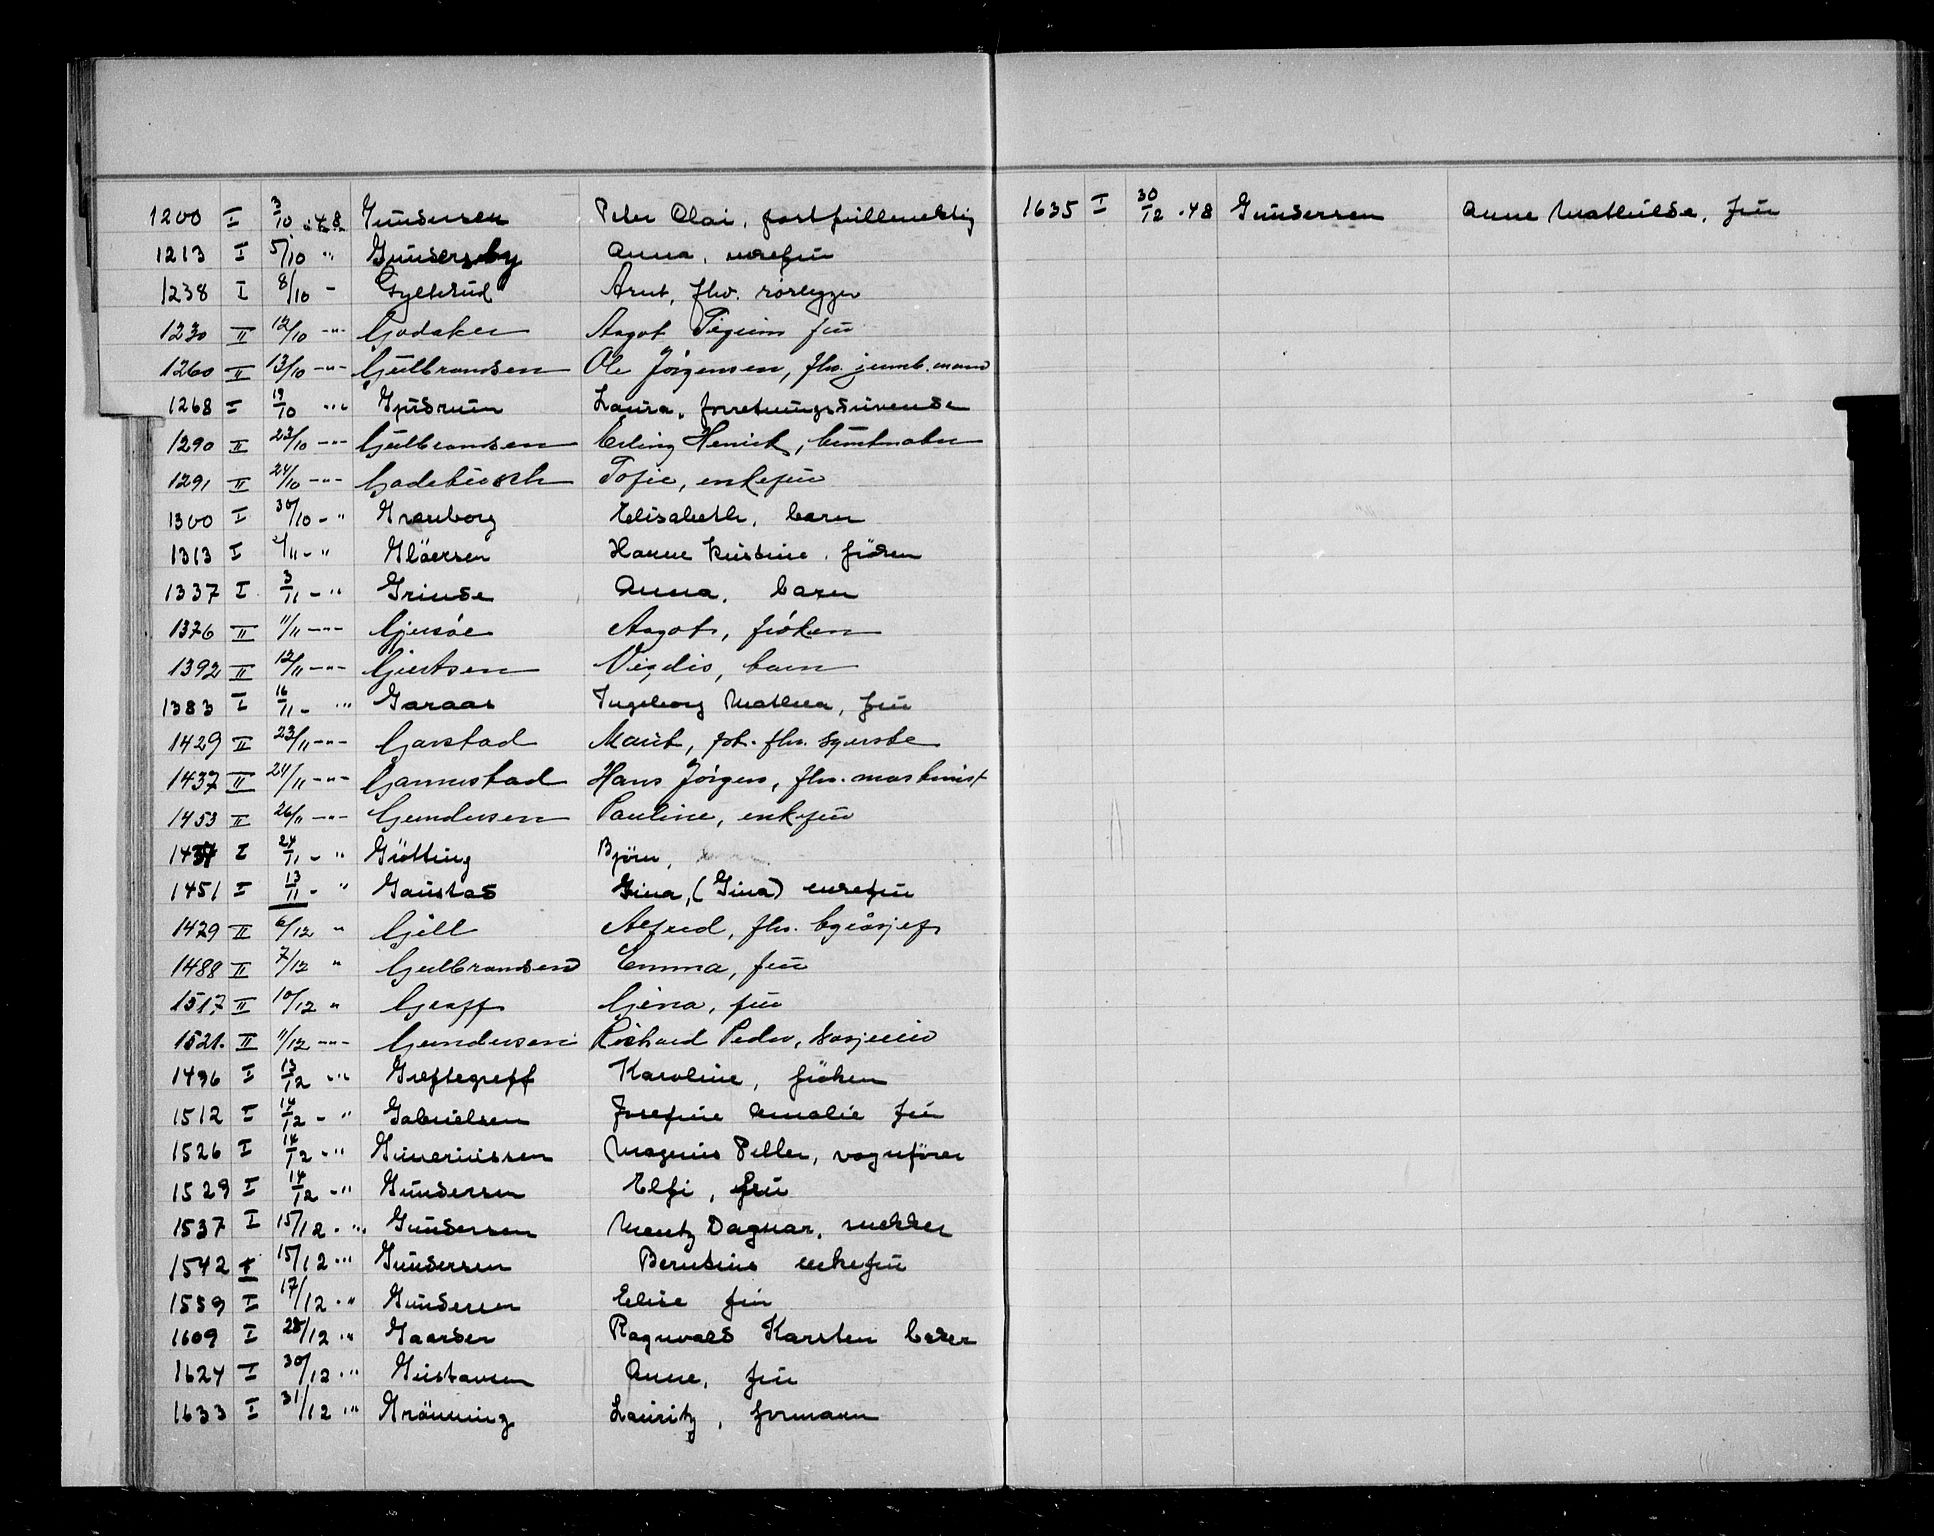 1200 I 3/10 .48 Gundersen Peter Olai, postfullmektig
1213 I 5/10 " Gundersby Anna, enkefru
1238 I 8/10 - Gylterud Arnt, fhv. rørlegger
1230 II 12/10 -"- Godaker Aagot fru
1260 II 13/10 -"- Gulbrandsen Ole Jörgensen, fhv. jernb.mann
1268 I 19/10 -"- Gudrun Laura, forretningsdrivende
1290 II 23/10 -"- Gulbrandsen Erling Henrick,
1291 II 24/10 -"- Godebusch Sofie, enkefru
1300 I 30/10 -" Granborg Elisabeth, barn
1313 I /11 -" Gläersen Hanne Kristine, fröken
1337 I 3/11 -" Grinde Anna, barn
1376 II 11/11 -"- Gjersøe Aagot, fröken
1392 II 12/11 -"- Gjertsen Vigdis, barn
1383 I 16/11 -" Garaas Ingeborg Mathea, fru
1429 II 23/11 -"- Garstad Marit, frk. fhv. syerske
1437 II 24/11 -"- Gannestad Hans Jörgen, fhv. maskinist
1453 II 26/11 -"- Gundersen Pauline, enkefru
1437 I 24/11 -" Grötting Björn,
1451 I 13/11 -" Gaustad Gina, (Gina) enkefru
1479 II 6/12 " Gill Alfred, fhv. byråsjef
1488 II 7/12 " Gulbrandsen Emma, fru
1517 II 10/12 " Graff Gina, fru
1521. II 11/12 -"- Gundersen Richard Peder,
1496 I 13/12 -" Greftegreff Karoline, fröken
1512 I 14/12 -" Gabrielsen Josefine Amalie fru
1526 I 14/12 -" Guneriussen Magnus Petter, vognförer
1529 I 14/12 -" Gundersen Elfi, fru
1537 I 15/12 -" Gundersen Mentz Dagmar, snekker
1542 I 15/12 -" Gundersen Berntine enkefru
1559 I 17/12 -" Gundersen Elise fru
1609 I 28/12 -" Gaarder Ragnvald Karsten baker
1624 I 30/12 -" Gustavsen Anne, fru
1633 I 31/12 -" Grönning Lauritz, formann
1635 I 30/12 .48 Gundersen Anne Mathilde, fru